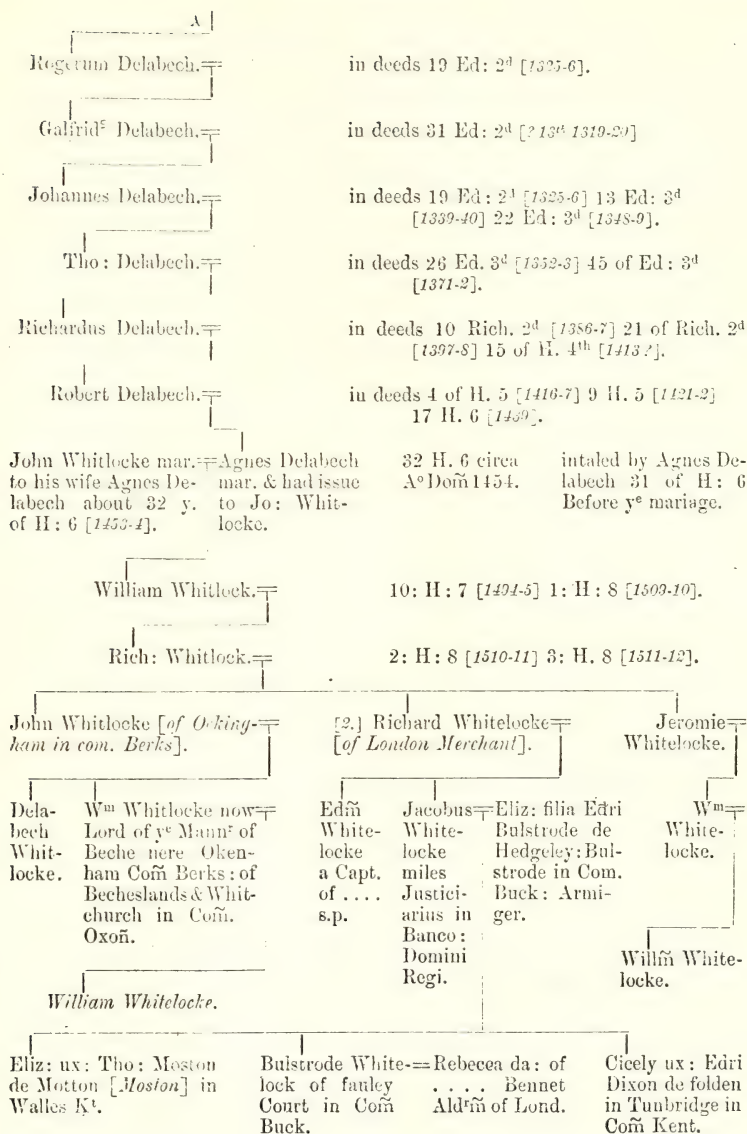 A
Rogerum Delabech. in deeds 19 Ed: 2d [1325-6].
Galfrids Delabech. in deeds 31 Ed: 2d [? 13th 1319-20]
Johannes Delabech. in deeds 19 Ed: 2d [1325-6] 13 Ed: 3d
[1339-40] 22 Ed: 3d [1348-9].
Tho: Delabech. in deeds 26 Ed. 3d [1352-3] 45 of Ed: 3d
[1371-2].
Richardus Delabech. in deeds 10 Rich. 2d [1386-7] 21 of Rich. 2d
[1397-8] 15 of H. 4th [1413?].
Robert Delabech. in deeds 4 of H. 5 [1416-7] 9 H. 5 [1421-2]
17 H. 6 [1439].
John Whitlocke mar.
to his wife Agnes De-
labech about 32 y.
of H: 6 [1453-4].
Agnes Delabech
mar. & had issue
to Jo: Whit-
locke.
32 H. 6 circa
Ao Dom̃ 1454.
intaled by Agnes De-
labech 31 of H: 6
Before ye mariage.
William Whitlock. 10: H: 7 [1494-5] 1: H: 8 [1509-10].
Rich: Whitlock. 2: H: 8 [1510-11] 3: H. 8 [1511-12].
John Whitlocke [of Ocking-
ham in com. Berks].
[2.] Richard Whitelocke
[of London Merchant].
Jeromie
Whitelocke.
Dela-
bech
Whit-
locke.
Wm Whitlocke now
Lord of ye Mannr of
Beche nere Oken-
ham Com̃ Berks: of
Becheslands & Whit-
church in Com̃.
Oxoñ.
Edm̃
White-
locke
a Capt.
of ....
s.p.
Jacobus
White-
locke
miles
Justici-
arius in
Banco:
Domini
Regi.
Eliz: filia Edri
Bulstrode de
Hedgeley: Bul-
strode in Com.
Buck: Armi-
ger.
Wm
White-
locke.
Willm̃ White-
locke.
William Whitelocke.
Eliz: ux: Tho: Moston
de Motton [Moston] in
Walles Kt.
Bulstrode White-
lock of fauley
Court in Com̃
Buck.
Rebecea da: of
.... Bennet
Aldrm̃ of Lond.
Cicely ux: Edri
Dixon de folden
in Tunbridge in
Com̃ Kent.